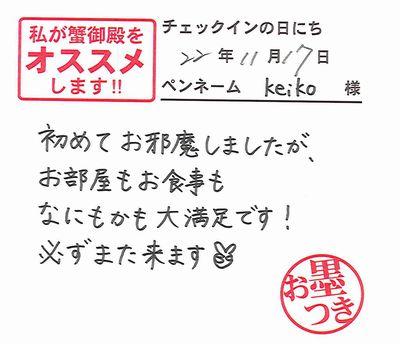 私が蟹御殿を
オススメ
します!!
チェックインの日にち
22年11月17日
ペンネーム keiko 様
初めてお邪魔しましたが、
お部屋もお食事も
なにもかも大満足です!
必ずまた来ます
お墨つき